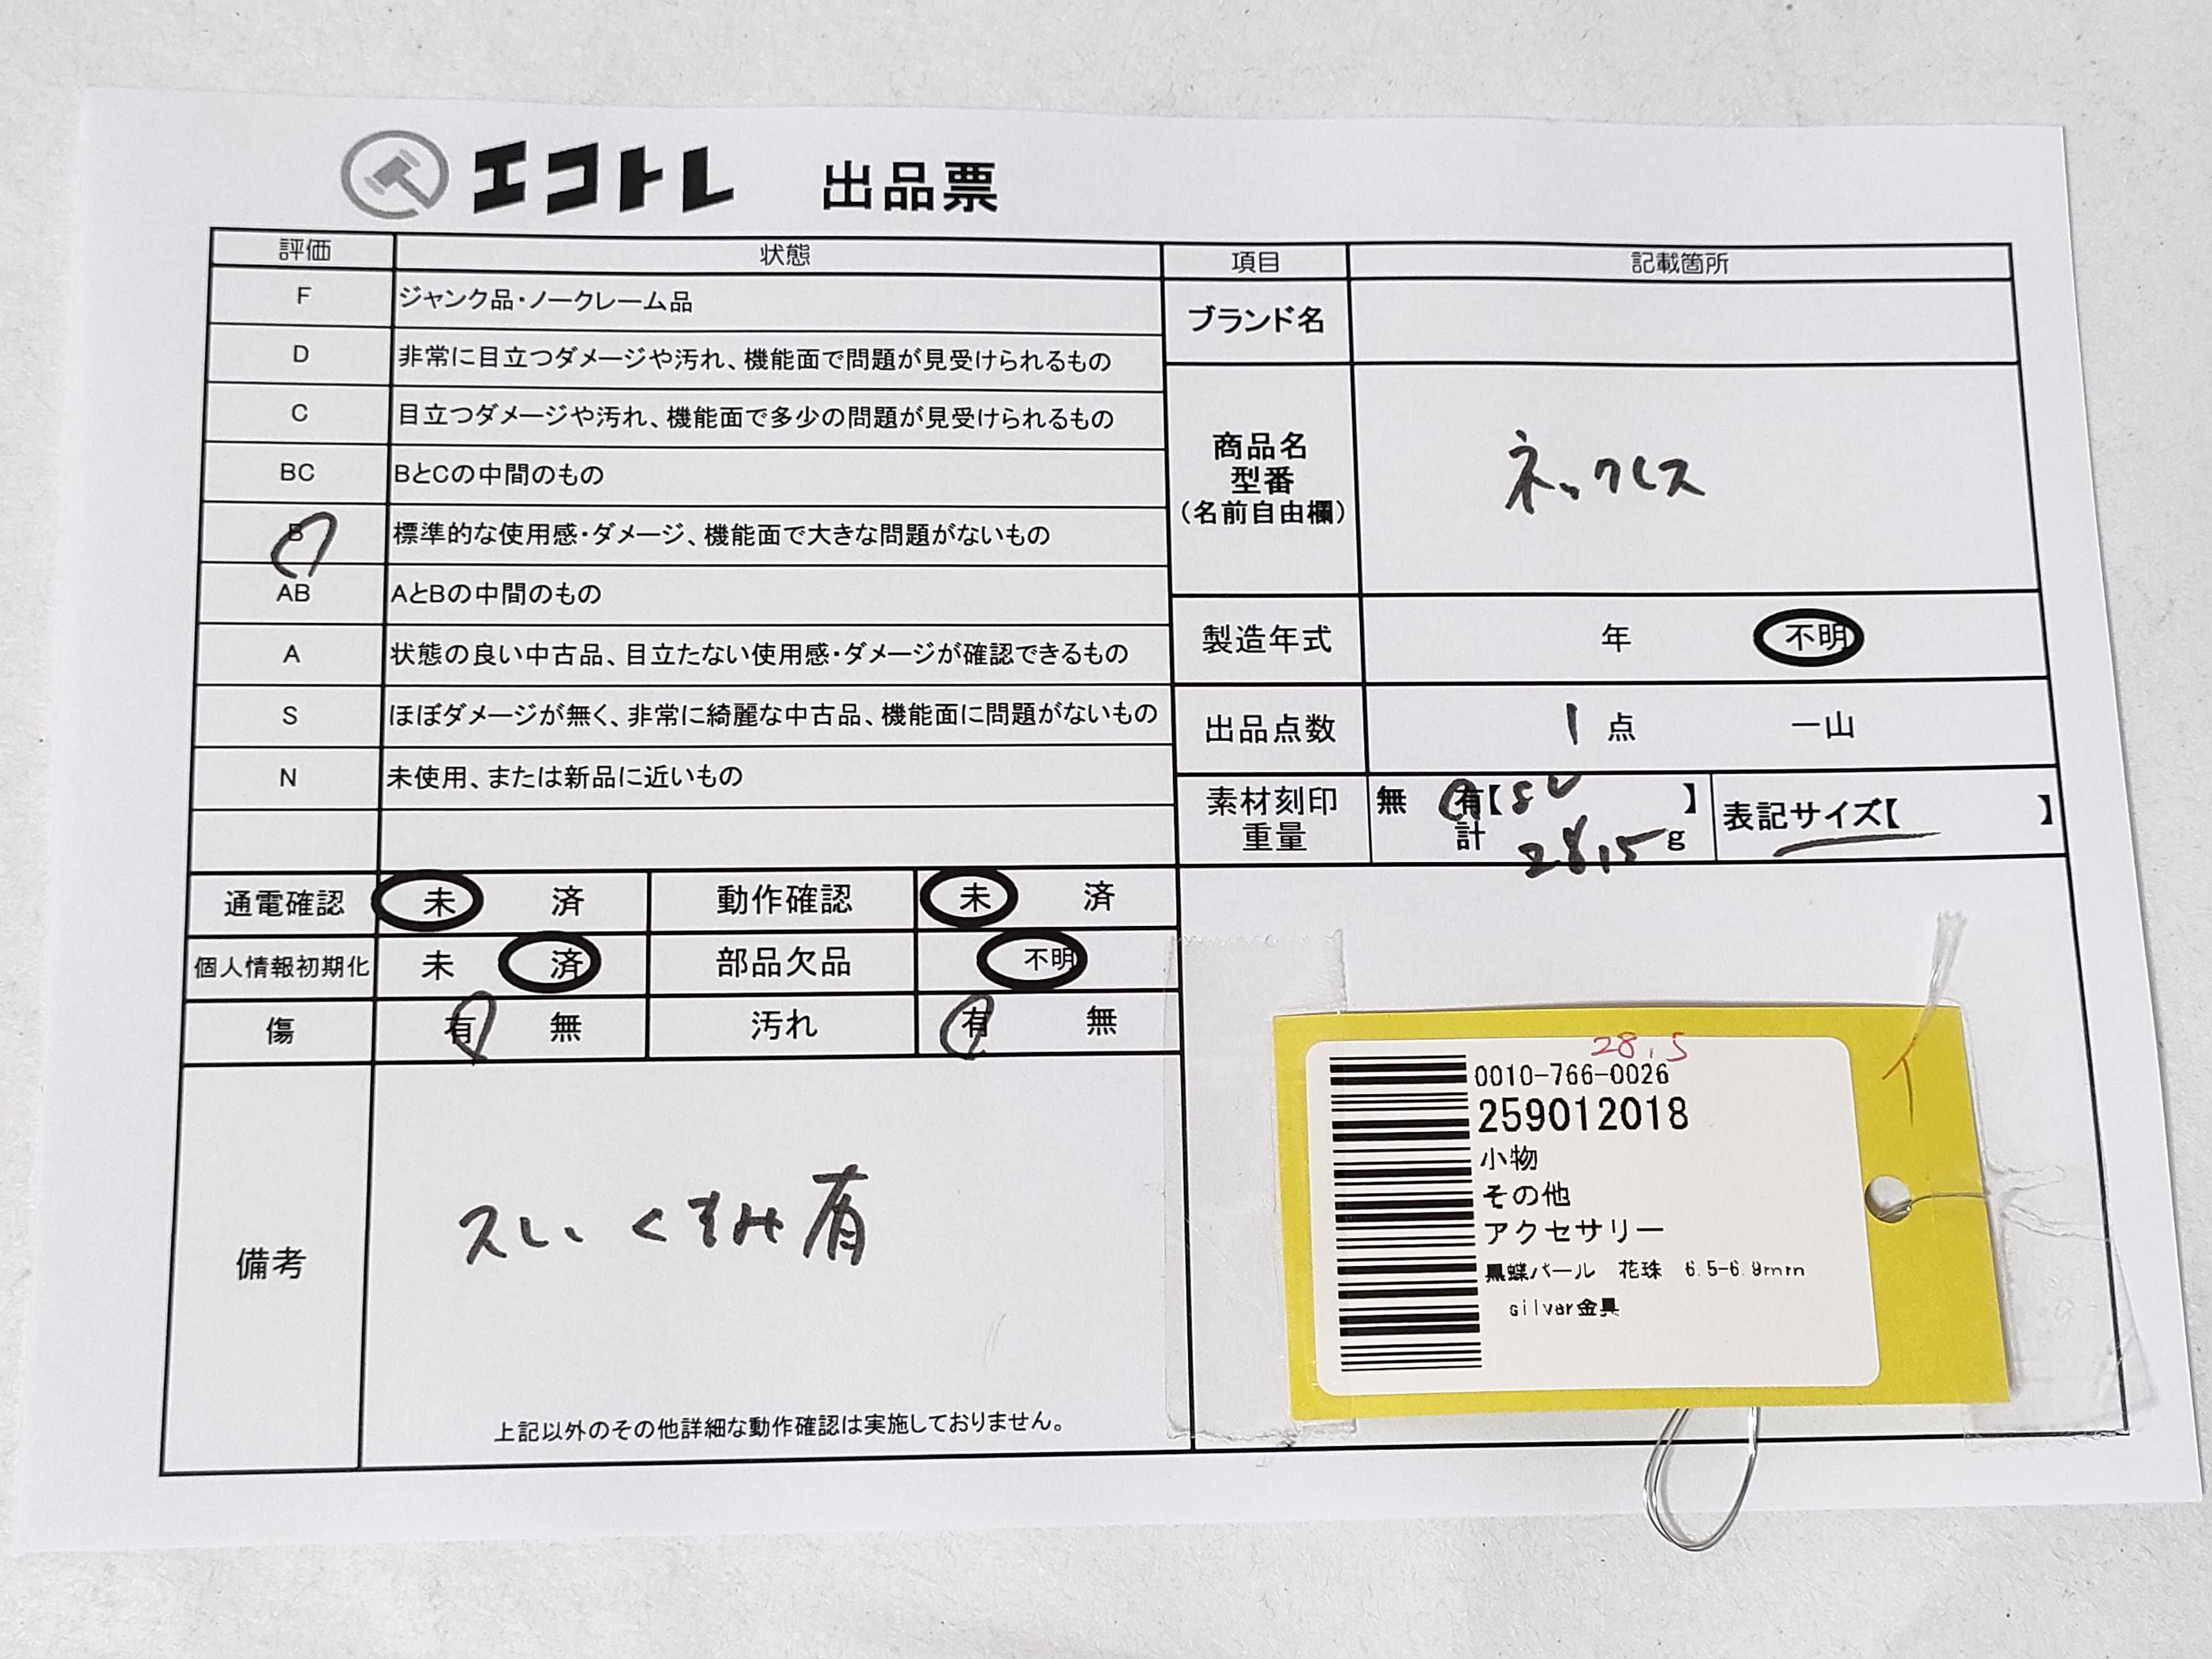 エコトレ 出品票
評価 状態 項目 記載箇所
F ジャンク品・ノークレーム品
D 非常に目立つダメージや汚れ、機能面で問題が見受けられるもの
C 目立つダメージや汚れ、機能面で多少の問題が見受けられるもの
BC BとCの中間のもの
B 標準的な使用感・ダメージ、機能面で大きな問題がないもの
AB AとBの中間のもの
A 状態の良い中古品、目立たない使用感・ダメージが確認できるもの
S ほぼダメージが無く、非常に綺麗な中古品、機能面に問題がないもの
N 未使用、または新品に近いもの
通電確認 未 済 動作確認 未 済
個人情報初期化 未 済 部品欠品 不明
傷 有 無 汚れ 有 無
備考
スレ、くすみ有
上記以外のその他詳細な動作確認は実施しておりません。
ブランド名
商品名
型番
(名前自由欄)
ネックレス
製造年式 年 不明
出品点数 1 点 一山
素材刻印 無 有【SV 】
重量 計 28.5 g
表記サイズ【 】
28.5
0010-766-0026
259012018
小物
その他
アクセサリー
黒蝶パール 花珠 6.5-6.9mm
silver金具